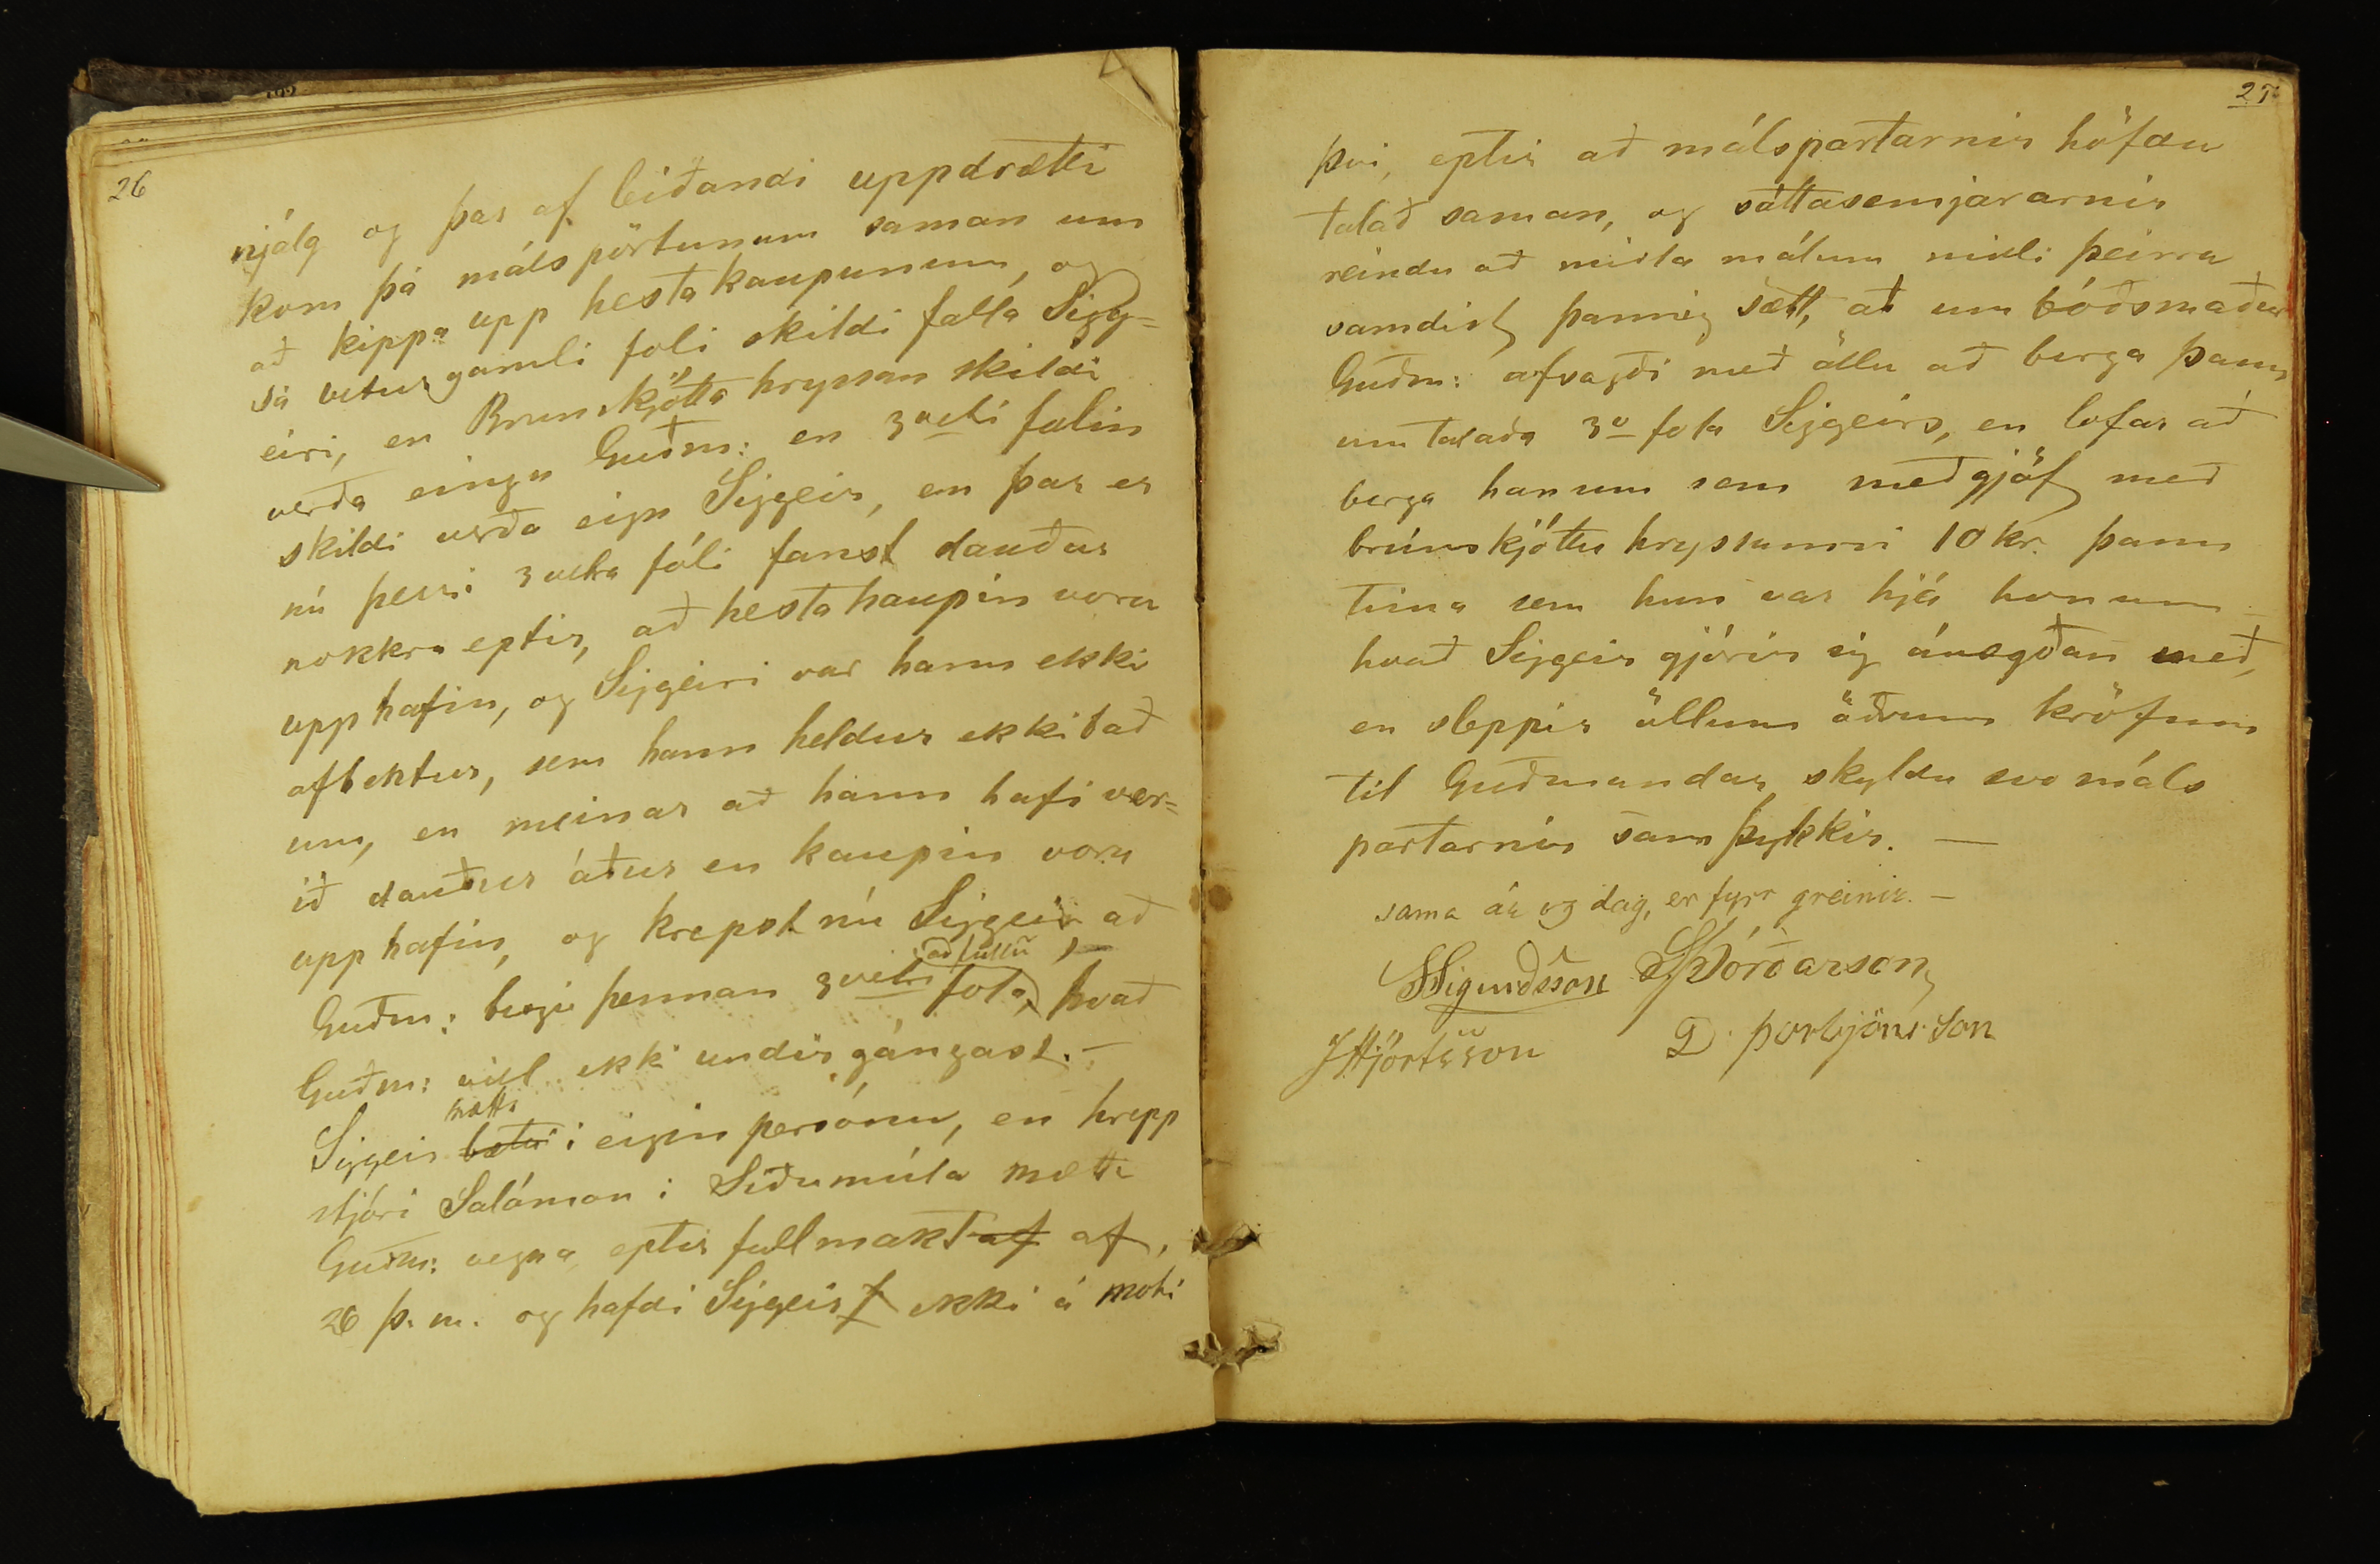 26
njálg og þar af leiðandi uppdrætti
kom þá málspörtunum saman um
að kippa upp hestakaupunum, og
sá veturgamli foli skildi falla Sigg=
eiri, en Brunskjótta hryssan skildi
verða eingu Guðm: en 3vetri folin
skildi verða eign Siggeir, en þar er
nú þessi 3vetra fóli fanst dauður
nokkru eptir, að hestakaupin voru
upphafin, og Siggeiri var hann ekki
afhentur, sem hann heldur ekki bað
um, en meinar að hann hafi ver=
ið dauður áður en kaupin voru
upphafin, og krepst nú Siggeir að
að fullu
Guðm: borgi þennan 3vetri fola, hvað
Guðm: vill ekki undirgángast. —
mætti
Siggeir i eigin persónu, en hrepp
stjóri Salómon i Siðumúla mætti
Guðm: vegna, eptir fullmakt af af,
26 þ. m. og hafdi Siggeir ekki á moti
27
þvi, eptir að málspartarnir höfdu
talað saman, og sáttasemjararnir
reindu að midla málum milli þeirra
samdist þannig sætt, að umbóðsmaður
Guðm: afsagði með öllu að borga þann
umtalaða 3v fola Siggeirs, en lofar að
borga hanum sem meðgjöf með
brúnskjóttu hryssunni 10 kr. þann
tima sem hun var hjá honum —
hvað Siggeir gjörir sig ánægðan með,
en sleppir öllum öðrum kröfum
til Guðmundar, skyldu svo máls
partarnir samþykkir. —
sama ár og dag, er fyrr greinir. —
SSigurðsson GÞórðarson
JHjörtsson D. Þorbjörnsson